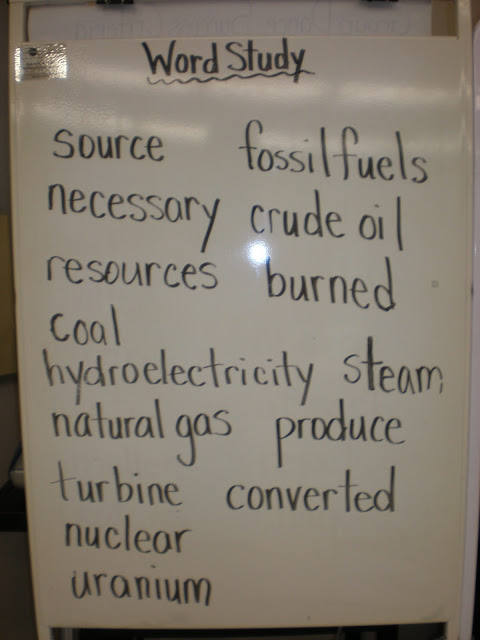 Word Study
source fossil fuels
necessary crude oil
resources burned
coal
hydroelectricity steam
natural gas produce
turbine converted
nuclear
uranium